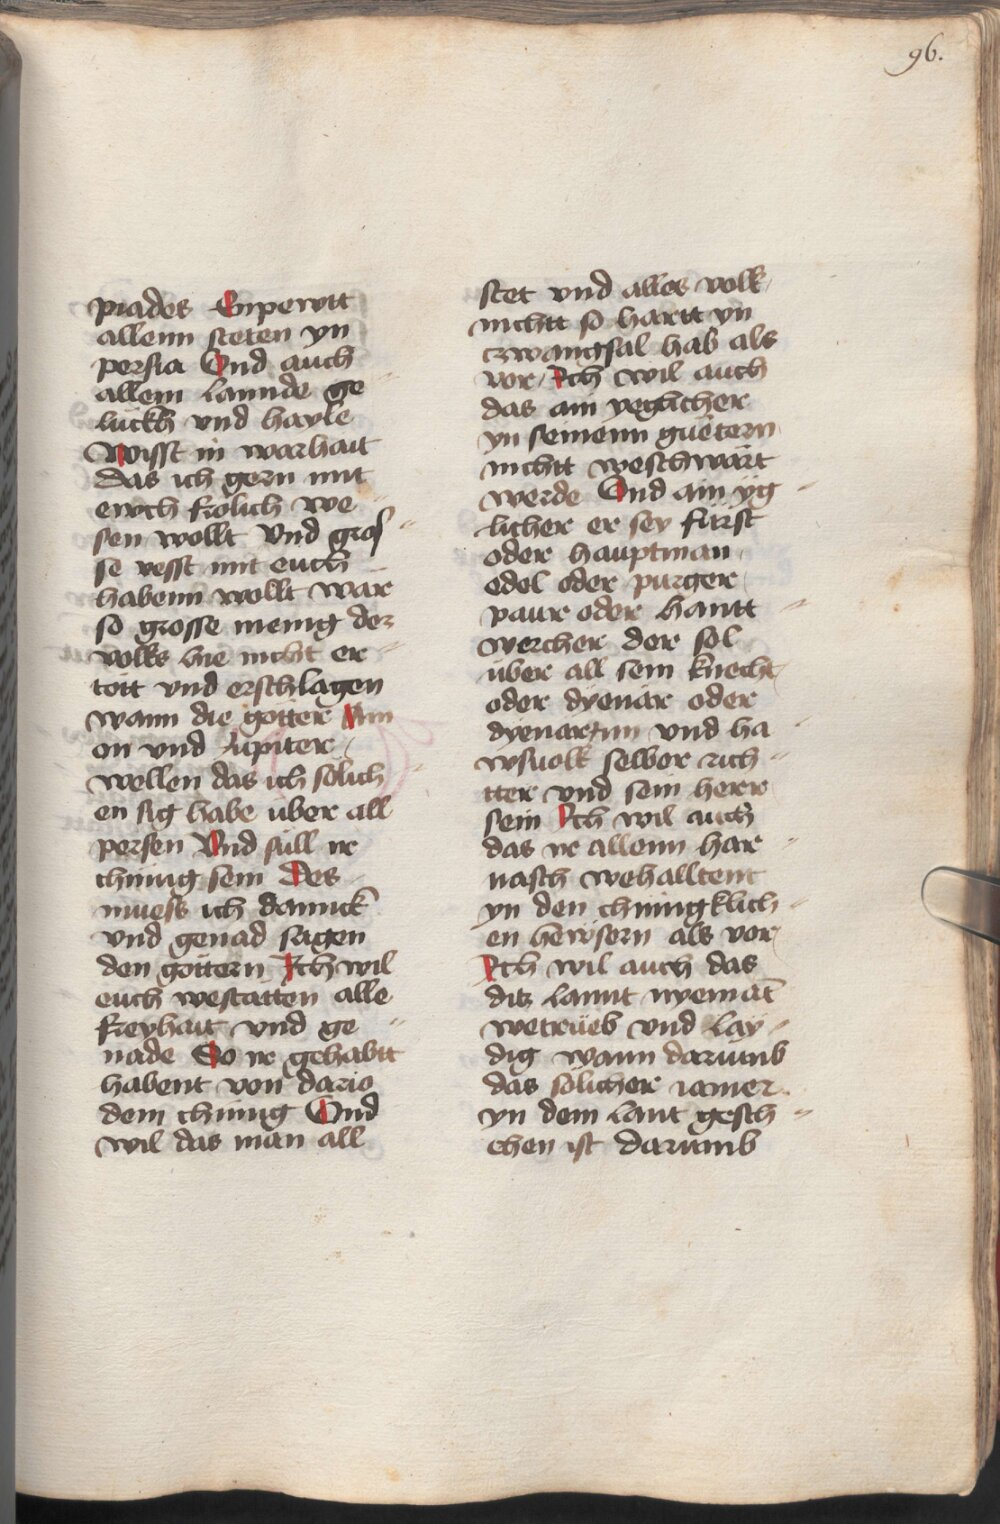 96.
piades Enpewtt
allenn steten yn
persia Vnd auch
allem lannde ge
lückh vnd hayle
Wisst in warhait
das ich gern mit
ewch frölich we
sen wollt Vnd gros
se vesst mit euch
habenn wollt wär
so grosse menig dez
volks hie nicht er
tött vnd erschlagen
wann die götter Am
on vnd Jupiter
wellen das ich sölich
en sig habe über all
persen Vnd süll ir
chünig sein Des
muess ich dannck
vnd genad sagen
den göttern Ich wil
euch westätten alle
freyhait vnd ge
nade So ir gehabtt
habent von dario
dem chünig Vnd
wil das man all
stet vnd alles volk
nichtt so hartt yn
czwangsal hab als
vor Ich wil auch
das ain yeglicher
yn seinenn guetern
nichtt weschwärt
werde Vnd ain yg
licher er sey fürst
oder hauptman
edel oder purger
paur oder hantt
wercher der sol
über all sein knecht
oder dyenär oder
dyenärinn vnd ha
wsuolk selber rich
tter vnd sein herr
sein Ich wil auch
das ir allenn har
nasch wehalltent
yn den chüngklich
en hewsern als vor
Ich wil auch das
ditz lannt nyemät
wetrüeb vnd lay
dig wann darumb
das sölicher iamer
yn dem lant gesch
ehen ist darumb